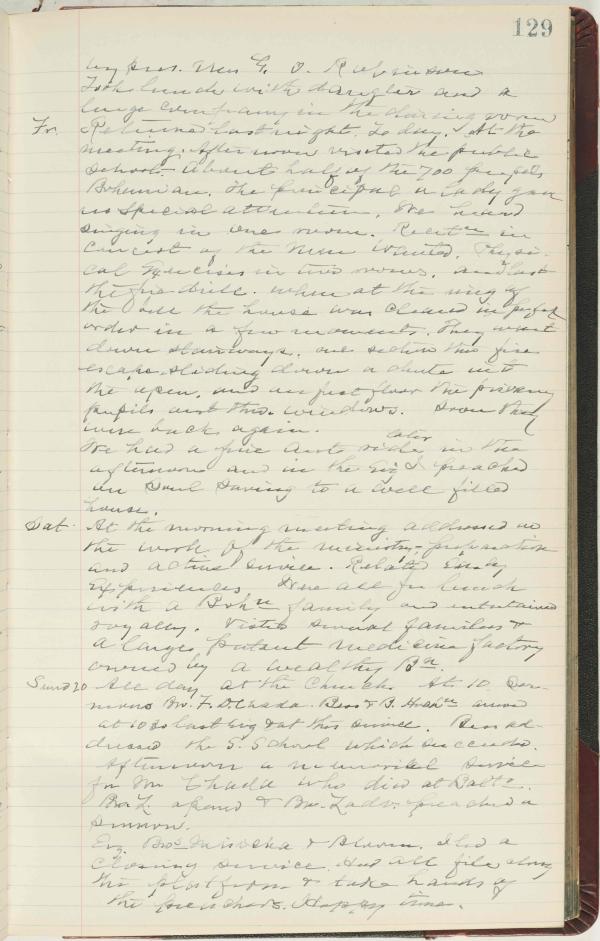 129
by pres. Mrs G. O. Robinson
Took lunch with daughter and a
large company in the dining room
Fr. Returned last night. To day. At the
meeting. Afternoon visited the public
school. About half of the 700 pupils
Bohemian. The principal a lady gave
us special attention. We heard
singing in one room. Recitn in
concert of the New United. Physi-
cal Exercises in two rooms, and last
the fire drill. when at the ring of
the bell the house was cleared in perfect
order in a few moments. They went
down stairways, one section the fire
escape sliding down a chute into
the open, and on first floor the primary
pupils out the windows. Soon they
were back again.
We had a fine Auto ride later in the
afternoon and in the Evg I preached
on Soul Saving to a well filled
house.
Sat. At the morning meeting addressed on
the work of the ministry, preparation
and active service. Related Early
Experiences. Were all for lunch
with a Bohn family and entertained
royally. Visited several families &
a large patent medicine factory
owned by a wealthy Bn.
Sund 20 All day at the Church. At 10. Ser-
mons Bro. F. D. Chada. Bess & B. arrived
at 10 30 last evg & at this service. Bess ad-
dressed the S. School which succeeds.
Afternoon a memorial service
for Mr Chada who died at Balto.
Bro L. spoke & Bro. preached a
sermon.
Ev. Bros. & Bloom. Also a
closing service. And all file along
the platform & take hands of
the preachers. Happy time.